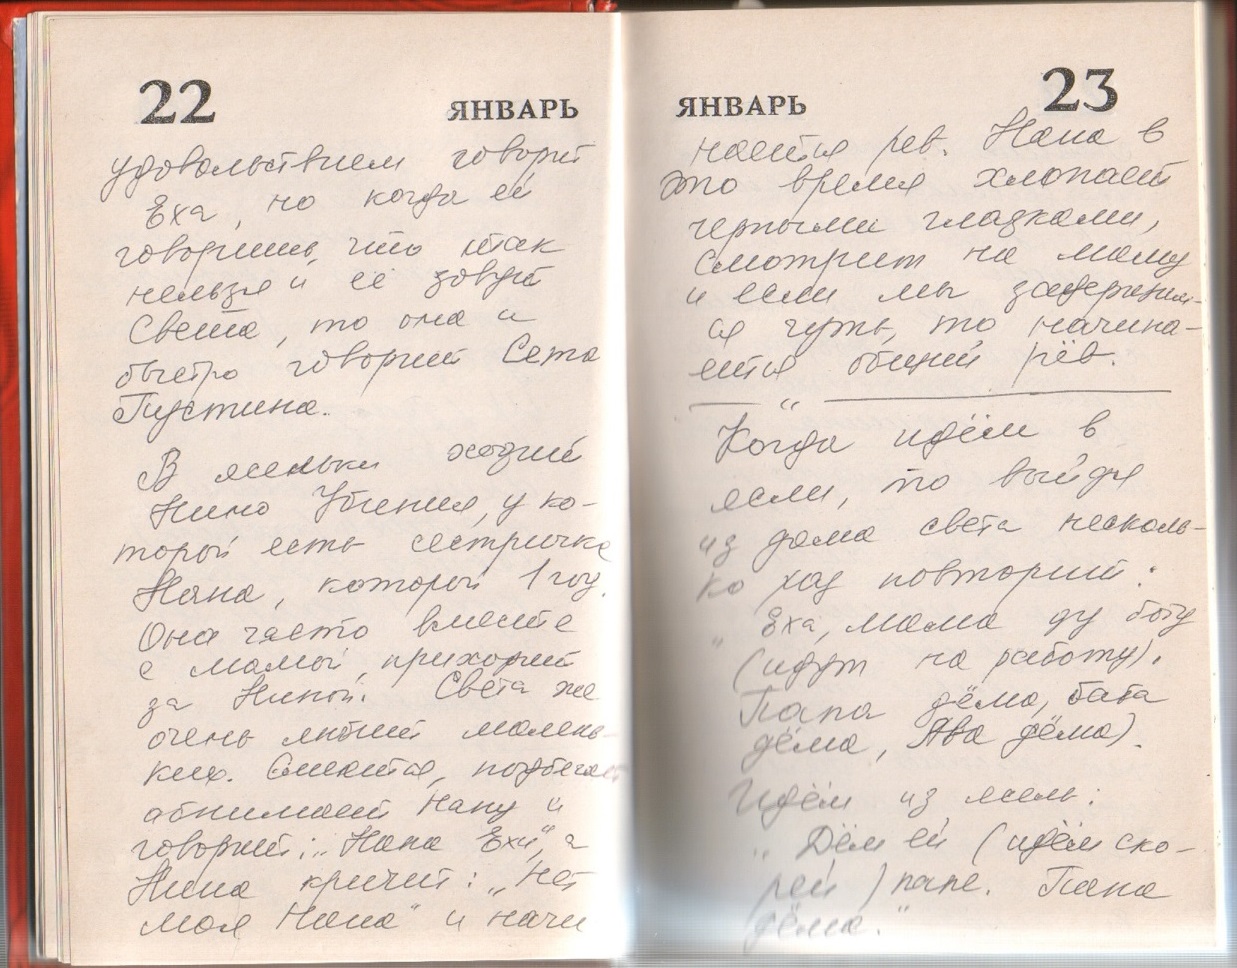 22 ЯНВАРЬ
удовольствием говорит
Еха, но когда ей
говоришь, что так
нельзя и её зовут
Света, то она и
быстро говорит Сета
Пустина.
В ясельки ходит
Нино, у ко-
торой есть сестричка
Нана, которой 1 год.
Она часто вместе
с мамой приходит
за Ниной. Света же
очень любит малень-
ких. Смеётся, подбегает
обнимает Нану и
говорит: „Нана Ехи", а
Нина кричит: „Нет
моя Нана" и начи
ЯНВАРЬ 23
нается рев. Нана в
это время хлопает
черными глазками,
смотрит на маму
и если мы задержим-
ся чуть, то начина-
ется общий рёв.
"
Когда идём в
ясли, то выйдя
из дома света несколь-
ко раз повторит:
" Еха, мама ду боту
(идут на работу).
Папа дёма, баба
дёма, Ява дёма).
Идём из ясель:
„ Дём ей (идём ско-
рей) папе. Папа
дёма."